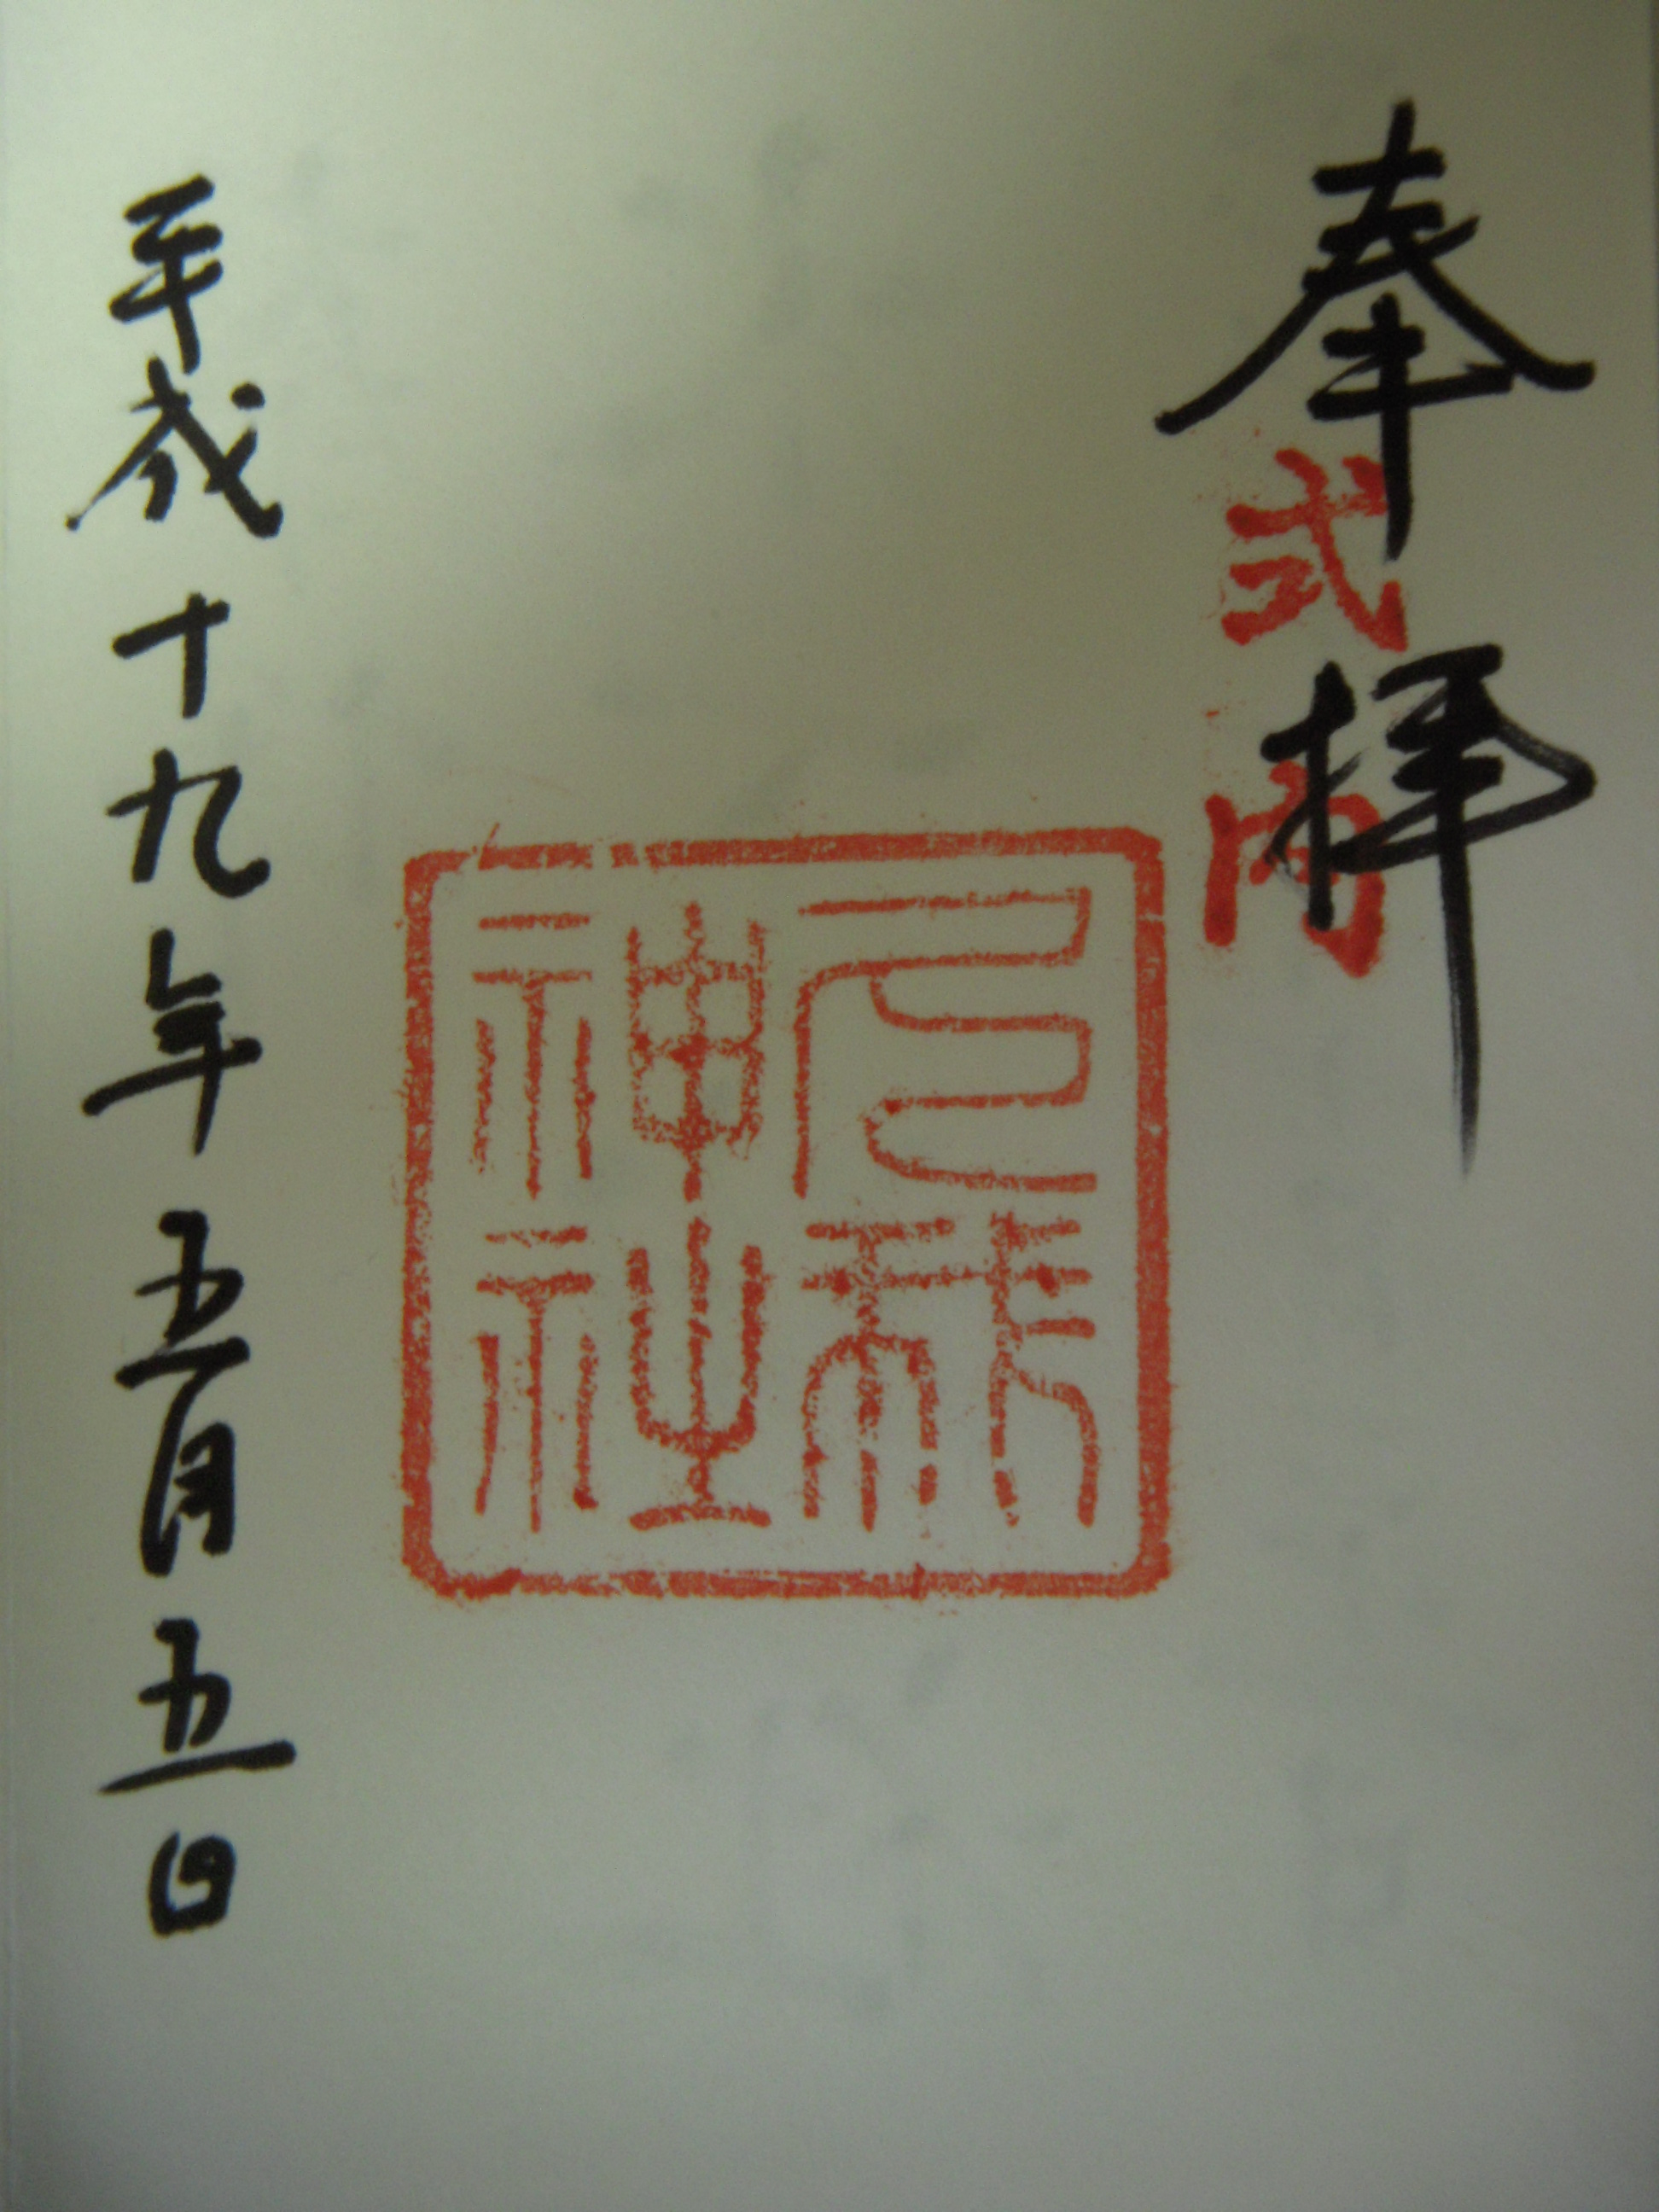 奉拝
式内
神社
平成十九年五月五日